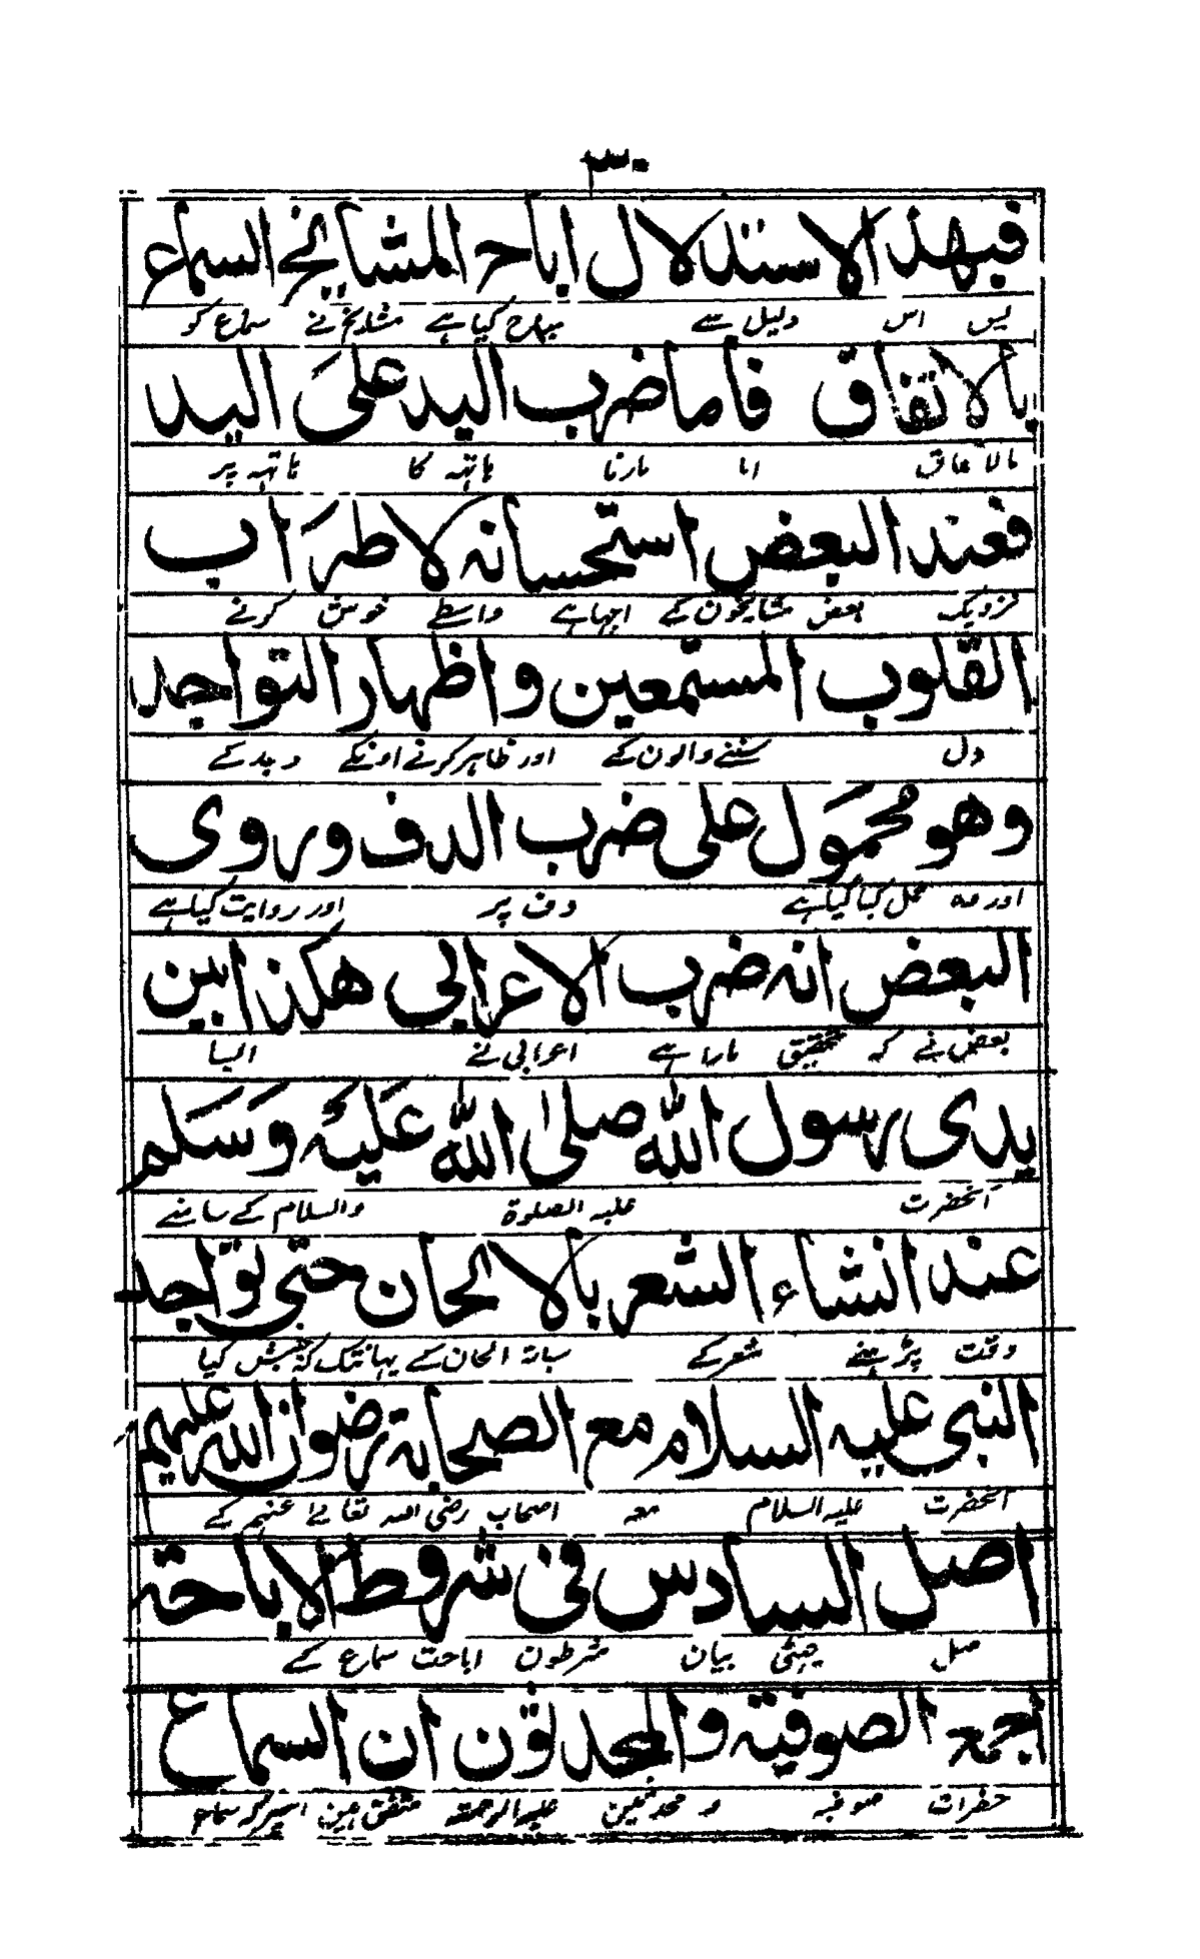 ۳۰
فبهذ الاستدلال اباح المشايخ السماع
پس اس دلیل سے مباح کیا ہے مشایخ نے سماع کو
بالاتفاق فاما ضرب اليد على اليد
بالاتفاق اما مارنا ہاتہہ کا ہاتہہ پر
فعند البعض استحسانه لاطراب
نزدیک بعض مشایخون کے اچہا ہے واسطے خوش کرنے
القلوب المستمعين واظهار التواجد
دل سننے والون کے اور ظاہر کرنے اونکے وجد کے
وهو محمول على ضرب الدف وروى
اور وہ حمل کیا گیا ہے دف پر اور روایت کیا ہے
البعض انه ضرب الاعرابى هكذا بين
بعض نے کہ تحقیق مارا ہے اعرابی نے ایسا
يدى رسول الله صلى الله عَليْه وَسَلم
آنحضرت علیہ الصلوة والسلام کے سامنے
عند انشاء الشعر بالالحان حتى تواجد
وقت پڑہنے شعر کے ساتہ الحان کے یہانتک کہ جنبش کیا
النبى عليه السلام مع الصحابة رضوان الله عليهم
آنحضرت علیہ السلام معہ اصحاب رضی اللہ تعالے عنہم کے
اصل السادس فى شروط الاباحته
اصل چہٹی بیان شرطون اباحت سماع کے
اجمع الصوفيه والمحدثون ان السماع
حضرات صوفیہ و محدثین علیہ الرحمتہ متفق ہین اسپر کہ سماع